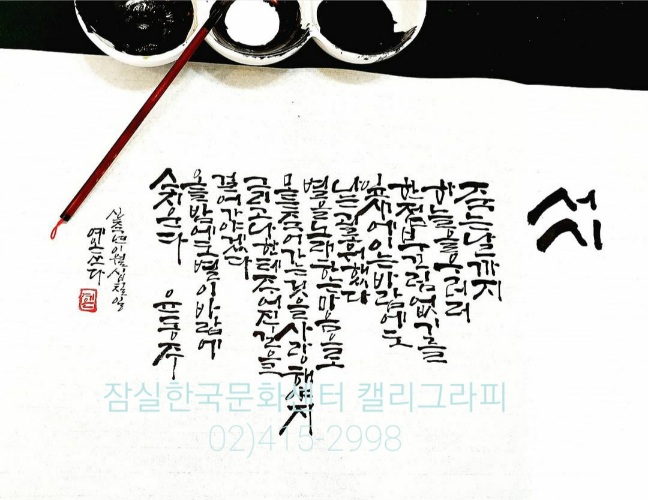 서시
죽는날까지
하늘을우러러
한점부끄럼없기를
잎새에이는바람에도
나는괴로워했다
별을노래하는마음으로
모든죽어가는것을사랑해야지
그리고나한테주어진길을
걸어가야겠다
오늘밤에도별이바람에
스치운다 윤동주
신축년이월십칠일
쓰다
잠실한국문화센터 캘리그라피
02)415-2998